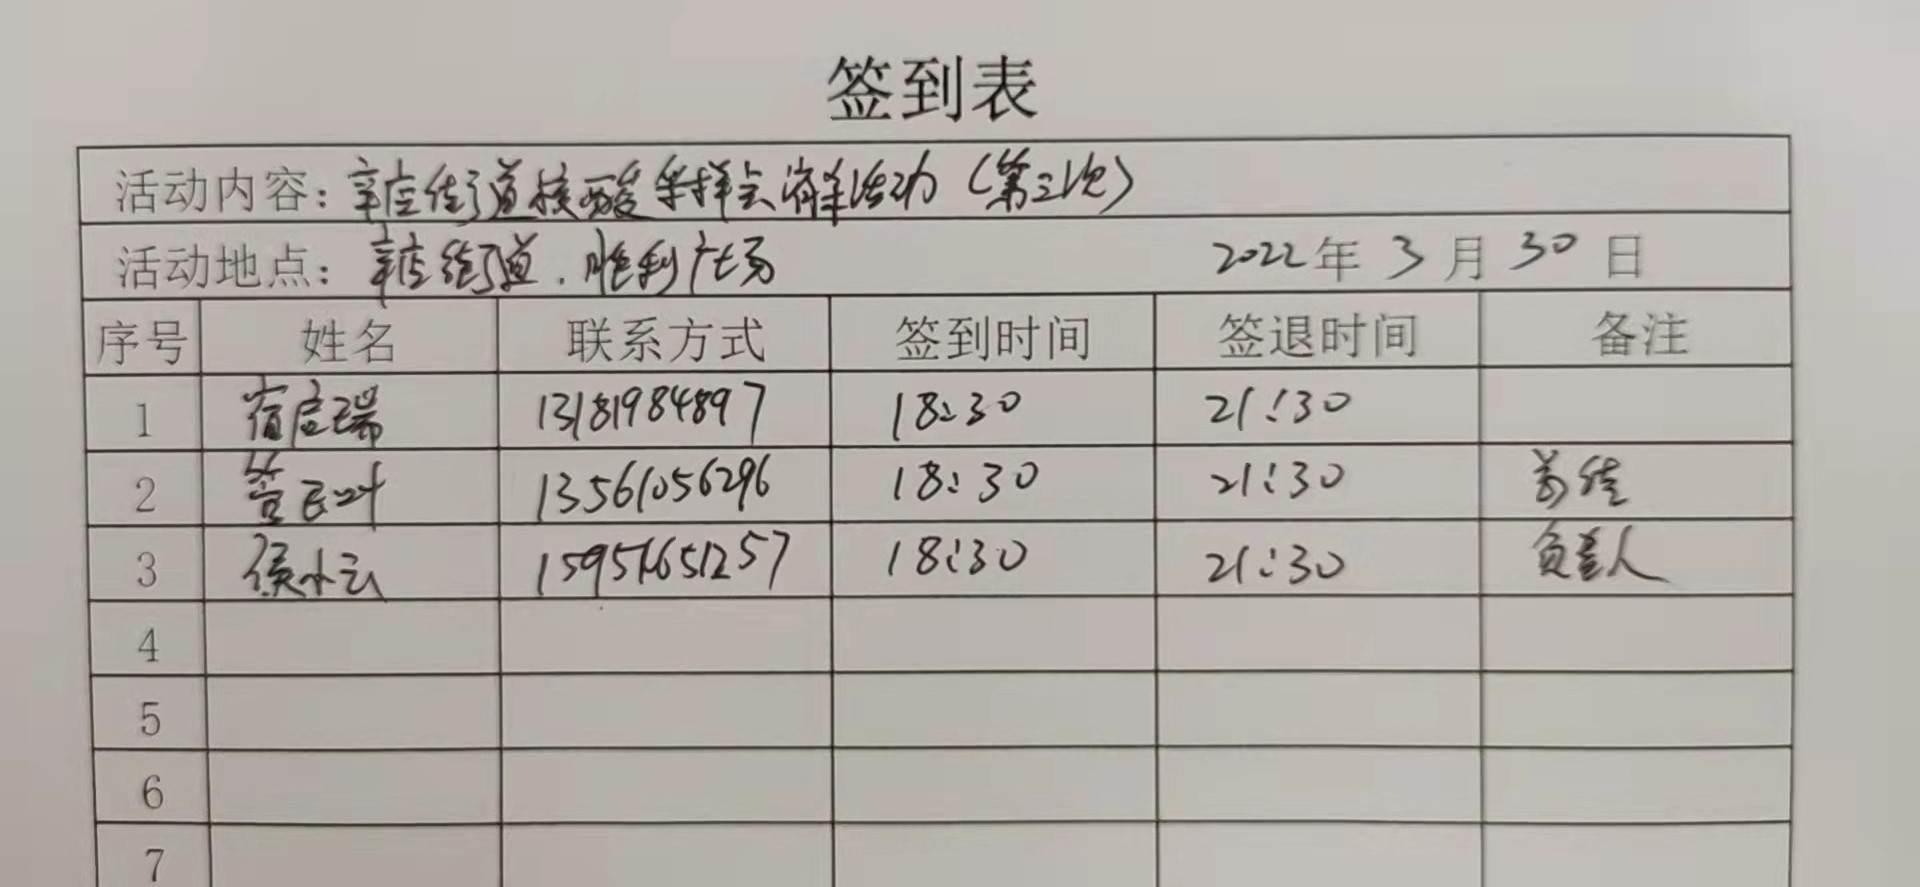 签到表
活动内容：辛店街道核酸采样点消杀活动（第三次）
活动地点：辛店街道．胜利广场 2022年3月30日
序号 姓名 联系方式 签到时间 签退时间 备注
1 宿启瑞 13181984897 18:30 21:30
2 管民叶 13561056296 18:30 21:30
3 侯小云 15951651257 18:30 21:30 负责人
4
5
6
7